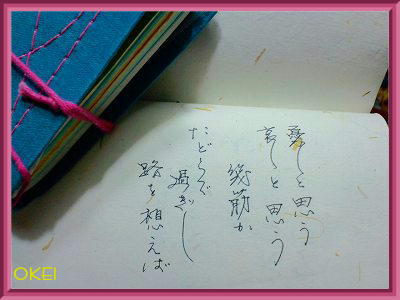 愛しと思う
哀しと思う
幾筋か
たどらで
過ぎし
路を想えば
OKEI